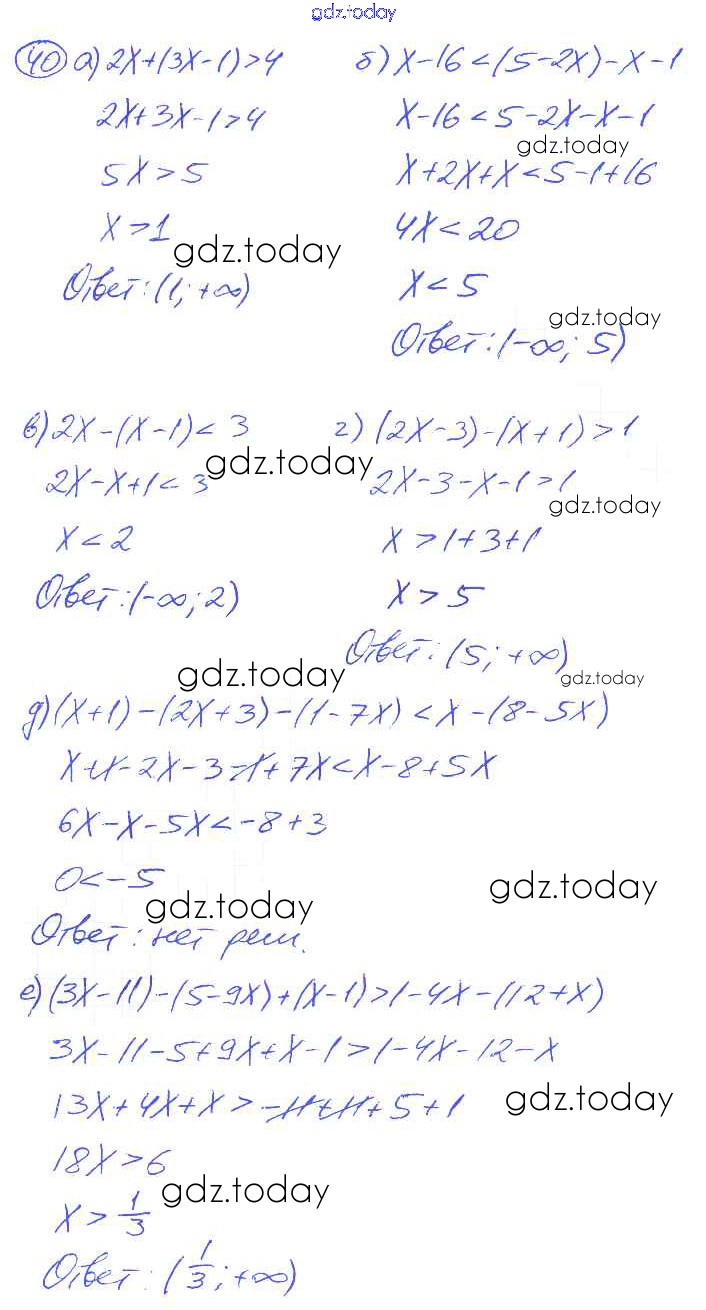 gdz.today
40 а) 2x+(3x-1)>4
2x+3x-1>4
5x>5
x>1
gdz.today
Ответ: (1; +∞)
б) x-16<(5-2x)-x-1
x-16<5-2x-x-1
gdz.today
x+2x+x<5-1+16
4x<20
x<5
gdz.today
Ответ: (-∞; 5)
в) 2x-(x-1)<3
gdz.today
2x-x+1<3
x<2
Ответ: (-∞; 2)
г) (2x-3)-(x+1)>1
2x-3-x-1>1
gdz.today
x>1+3+1
x>5
Ответ: (5; +∞)
gdz.today
gdz.today
д) (x+1)-(2x+3)-(1-7x)<x-(8-5x)
x+1-2x-3-1+7x<x-8+5x
6x-x-5x<-8+3
0<-5
gdz.today
gdz.today
Ответ: нет реш.
е) (3x-11)-(5-9x)+(x-1)>1-4x-(12+x)
3x-11-5+9x+x-1>1-4x-12-x
13x+4x+x>-11+11+5+1
gdz.today
18x>6
gdz.today
x>1/3
Ответ: (1/3; +∞)